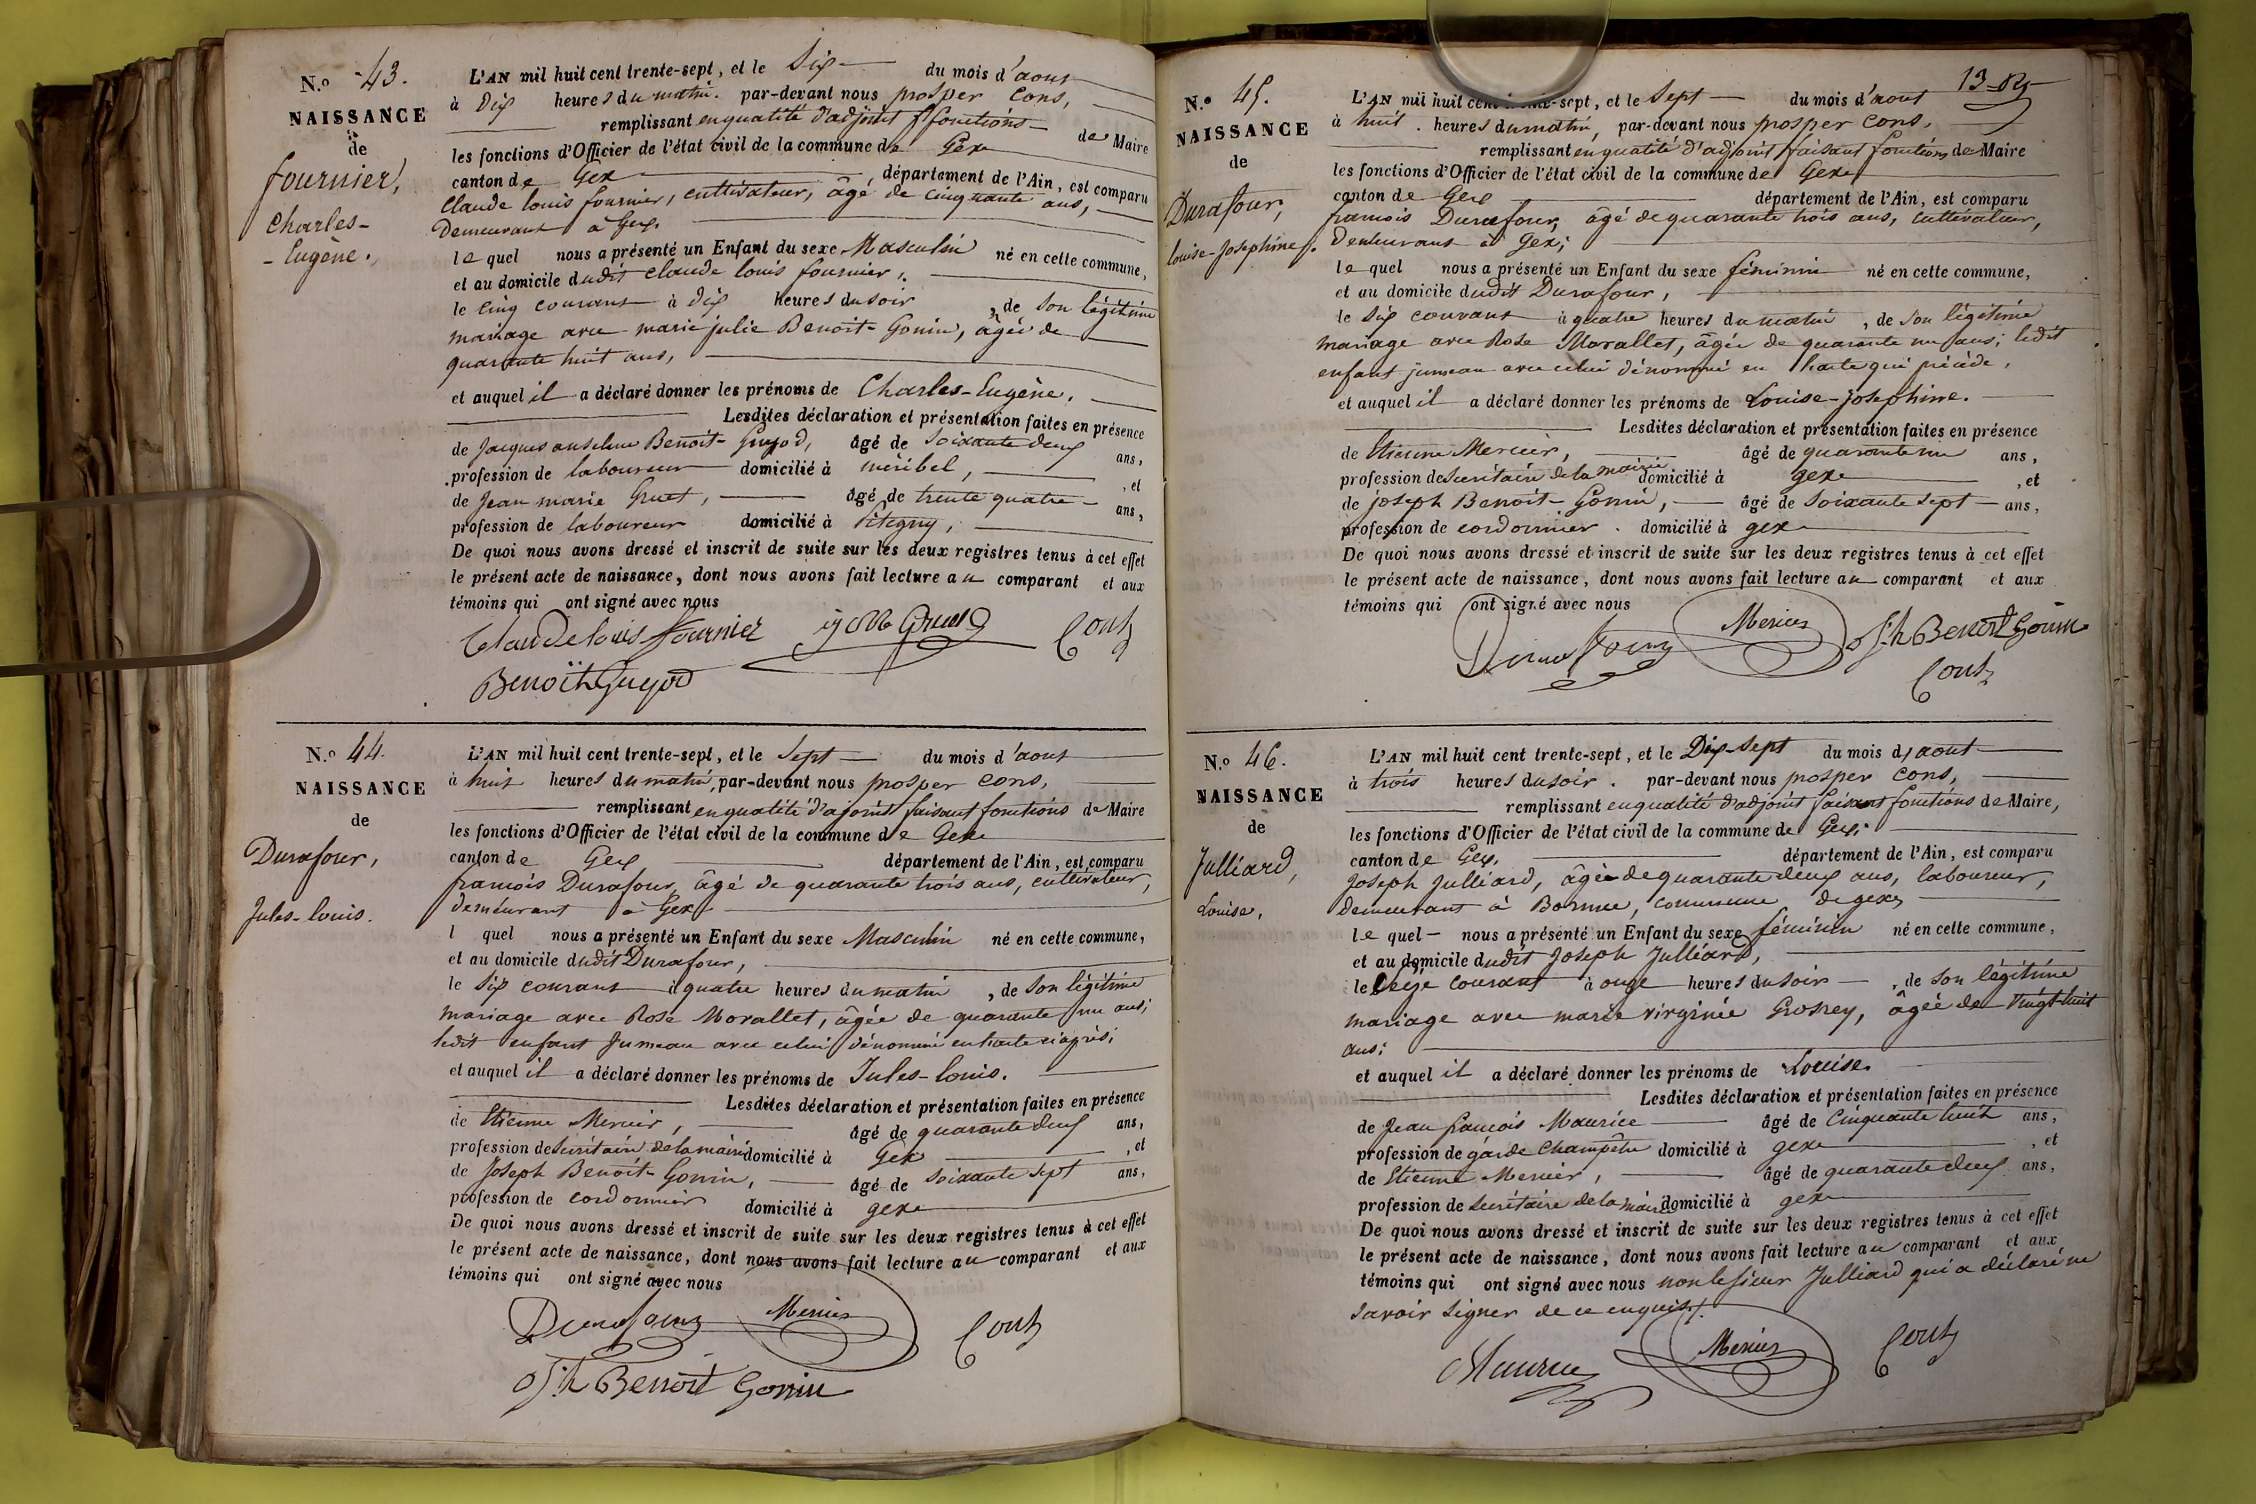 N.o 43.
NAISSANCE
de
fournier,
Charles-
-Eugène.
L'AN mil huit cent trente-sept, et le Six du mois d'aout
à Dix heures du matin. par-devant nous prosper Cons,
remplissant en qualité d'adjoint fonctions de Maire
les fonctions d'Officier de l'état civil de la commune de Gex
canton de Gex, département de l'Ain, est comparu
Claude louis fournier, cultivateur, âgé de cinquante ans,
Demeurant à Gex.
le quel nous a présenté un Enfant du sexe Masculin né en cette commune,
et au domicile dudit Claude louis fournier,
le cinq courant à dix heures du soir, de son légitime
mariage avec marie julie Benoit-Gonin, âgée de
quarante huit ans,
et auquel il a déclaré donner les prénoms de Charles-Eugène.
Lesdites déclaration et présentation faites en présence
de Jacques anselme Benoit-Guyod, âgé de soixante deux ans,
profession de laboureur domicilié à méribel, et
de Jean marie Gruet, âgé de trente quatre ans,
profession de laboureur domicilié à Pitegny,
De quoi nous avons dressé et inscrit de suite sur les deux registres tenus à cet effet
le présent acte de naissance, dont nous avons fait lecture au comparant et aux
témoins qui ont signé avec nous
Claude louis fournier Gruet Cons
Benoit Guyod
N.o 44.
NAISSANCE
de
Durafour,
Jules-louis.
L'AN mil huit cent trente-sept, et le Sept du mois d'aout
à huit heures du matin, par-devant nous prosper Cons,
remplissant en qualité d'ajoint faisant fonctions de Maire
les fonctions d'Officier de l'état civil de la commune de Gex
canton de Gex département de l'Ain, est comparu
françois Durafour, âgé de quarante trois ans, cultivateur,
demeurant à Gex
l quel nous a présenté un Enfant du sexe Masculin né en cette commune,
et au domicile dudit Durafour,
le Six courant à quatre heures du matin, de son légitime
mariage avec Rose Morallet, âgée de quarante un ans;
ledit enfant jumeau avec celui dénommé en l'acte ci après;
et auquel il a déclaré donner les prénoms de Jules-louis.
Lesdites déclaration et présentation faites en présence
de Etienne Mercier, âgé de quarante deux ans,
profession de secrétaire de la mairie domicilié à Gex, et
de Joseph Benoit-Gonin, âgé de soixante sept ans,
profession de cordonnier domicilié à gex
De quoi nous avons dressé et inscrit de suite sur les deux registres tenus à cet effet
le présent acte de naissance, dont nous avons fait lecture au comparant et aux
témoins qui ont signé avec nous
Durafour Mercier Cons
Jh Benoit Gonin
13
N.o 45.
NAISSANCE
de
Durafour,
louise-Josephine.
L'AN mil huit cent trente-sept, et le Sept du mois d'aout
à huit. heures du matin, par-devant nous prosper cons,
remplissant en qualité d'adjoint faisant fonctions de Maire
les fonctions d'Officier de l'état civil de la commune de Gex
canton de Gex département de l'Ain, est comparu
françois Durafour, âgé de quarante trois ans, cultivateur,
demeurant à Gex;
le quel nous a présenté un Enfant du sexe féminin né en cette commune,
et au domicile dudit Durafour,
le Six courant à quatre heures du matin, de son légitime
mariage avec Rose Morallet, âgée de quarante un ans; ledit
enfant jumeau avec celui dénommé en l'acte qui précède,
et auquel il a déclaré donner les prénoms de Louise-josephine.
Lesdites déclaration et présentation faites en présence
de Etienne Mercier, âgé de quarante un ans,
profession de secrétaire de la mairie domicilié à gex, et
de joseph Benoit-Gonin, âgé de soixante sept ans,
profession de cordonnier. domicilié à gex
De quoi nous avons dressé et inscrit de suite sur les deux registres tenus à cet effet
le présent acte de naissance, dont nous avons fait lecture au comparant et aux
témoins qui ont signé avec nous
Durafour Mercier Jh Benoit Gonin
Cons
N.o 46.
NAISSANCE
de
Julliard,
Louise,
L'AN mil huit cent trente-sept, et le Dix-Sept du mois d'aout
à trois heures du soir. par-devant nous prosper Cons,
remplissant en qualité d'adjoint faisant fonctions de Maire,
les fonctions d'Officier de l'état civil de la commune de Gex.
canton de Gex. département de l'Ain, est comparu
Joseph Julliard, âgé de quarante deux ans, laboureur,
demeurant à commune de gex
le quel nous a présenté un Enfant du sexe féminin né en cette commune,
et au domicile dudit Joseph Julliard,
le seize courant à onze heures du soir, de son légitime
mariage avec marie virginie Grosrey, âgée de vingt huit
ans;
et auquel il a déclaré donner les prénoms de Louise.
Lesdites déclaration et présentation faites en présence
de Jean françois Maurice âgé de Cinquante huit ans,
profession de garde Champêtre domicilié à gex, et
de Etienne Mercier, âgé de quarante deux ans,
profession de secrétaire de la mairie domicilié à gex
De quoi nous avons dressé et inscrit de suite sur les deux registres tenus à cet effet
le présent acte de naissance, dont nous avons fait lecture au comparant et aux
témoins qui ont signé avec nous non le sieur Julliard qui a déclaré ne
savoir signer de ce enquis.
Maurice Mercier Cons